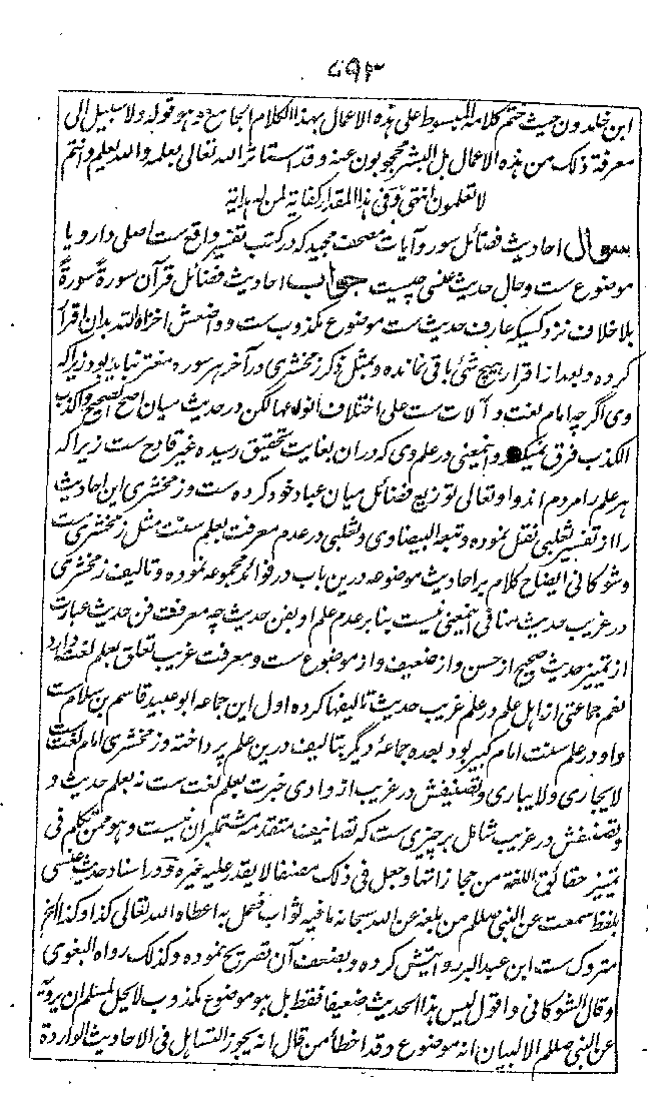 ۷۹۳
ابن خلدون حیث ختم کلامه المبسوط علی هذه الاعمال بهذا الکلام الجامع وهو قوله ولا سبیل الی
معرفة ذلک من هذه الاعمال بل البشر محجوبون عنه وقد استاثر الله تعالی بعلمه والله یعلم وانتم
لا تعلمون انتهی وفی هذا المقدار کفایة لمن له هدایة
سوال احادیث فضائل سور وآیات مصحف مجید که در کتب تفسیر واقع ست اصلی دارو یا
موضوع ست وحال حدیث عنسی چیست جواب احادیث فضائل قرآن سورةً سورةً
بلا خلاف نزد کسیکه عارف حدیث ست موضوع مکذوب ست وواضعش اخزاه الله بدان اقرار
کرده وبعد از اقرار هیچ شئ باقی نمانده وبمثل ذکر زمخشری در آخر هر سوره مغتر نباید بود زیرا که
وی اگرچه امام لغت و آلات ست علی اختلاف انواعها لکن در حدیث میان اصح الصحیح واکذب
الکذب فرق نمیکند واینمعنی در علم وی که دران بغایت تحقیق رسیده غیر قادح ست زیرا که
هر علم را مردم اند واو تعالی توزیع فضائل میان عباد خود کرده ست وزمخشری این احادیث
را از تفسیر ثعلبی نقل نموده وتبعه البیضاوی وثعلبی در عدم معرفت بعلم سنت مثل زمخشری ست
وشوکانی ایضاح کلام بر احادیث موضوعه درین باب در فوائد مجموعه نموده وتالیف زمخشری
در غریب حدیث منافی اینمعنی نیست بنا بر عدم علم او بفن حدیث چه معرفت فن حدیث عبارت
از تمییز حدیث صحیح از حسن واز ضعیف واز موضوع ست ومعرفت غریب تعلق بعلم لغت دارد
نعم جماعتی از اهل علم در علم غریب حدیث تالیفها کرده اول این جماعه ابو عبید قاسم بن سلام ست
واو در علم سنت امام کبیر بود بعده جماعهٔ دیگر بتالیف درین علم پرداخته وزمخشری امام لغت ست
لا یجاری ولا یباری وتصنیفش در غریب از وادی خبرت بعلم لغت ست نه بعلم حدیث و
وتصنیفش در غریب شامل بر چیزی ست که تصانیف متقدمه مشتمل بران نیست وهو ممن تکلم فی
تمییز حقائق اللغة من مجازاتها وجعل فی ذلک مصنفا لا یقدر علیه غیره ودر اسناد حدیث عنسی
بلفظ سمعت عن النبی صلعم من بلغه عن الله سبحانه ما فیه ثواب فعمل به اعطاه الله تعالی کذا وکذا الخ
متروک ست ابن عبد البر روایتش کرده وبضعف آن تصریح نموده وکذلک رواه البغوی
وقال الشوکانی واقول لیس هذا الحدیث ضعیفا فقط بل هو موضوع مکذوب لا یحل لمسلم ان یرویه
عن النبی صلعم الا لبیان انه موضوع وقد اخطأ من قال انه یجوز التساهل فی الاحادیث الواردة